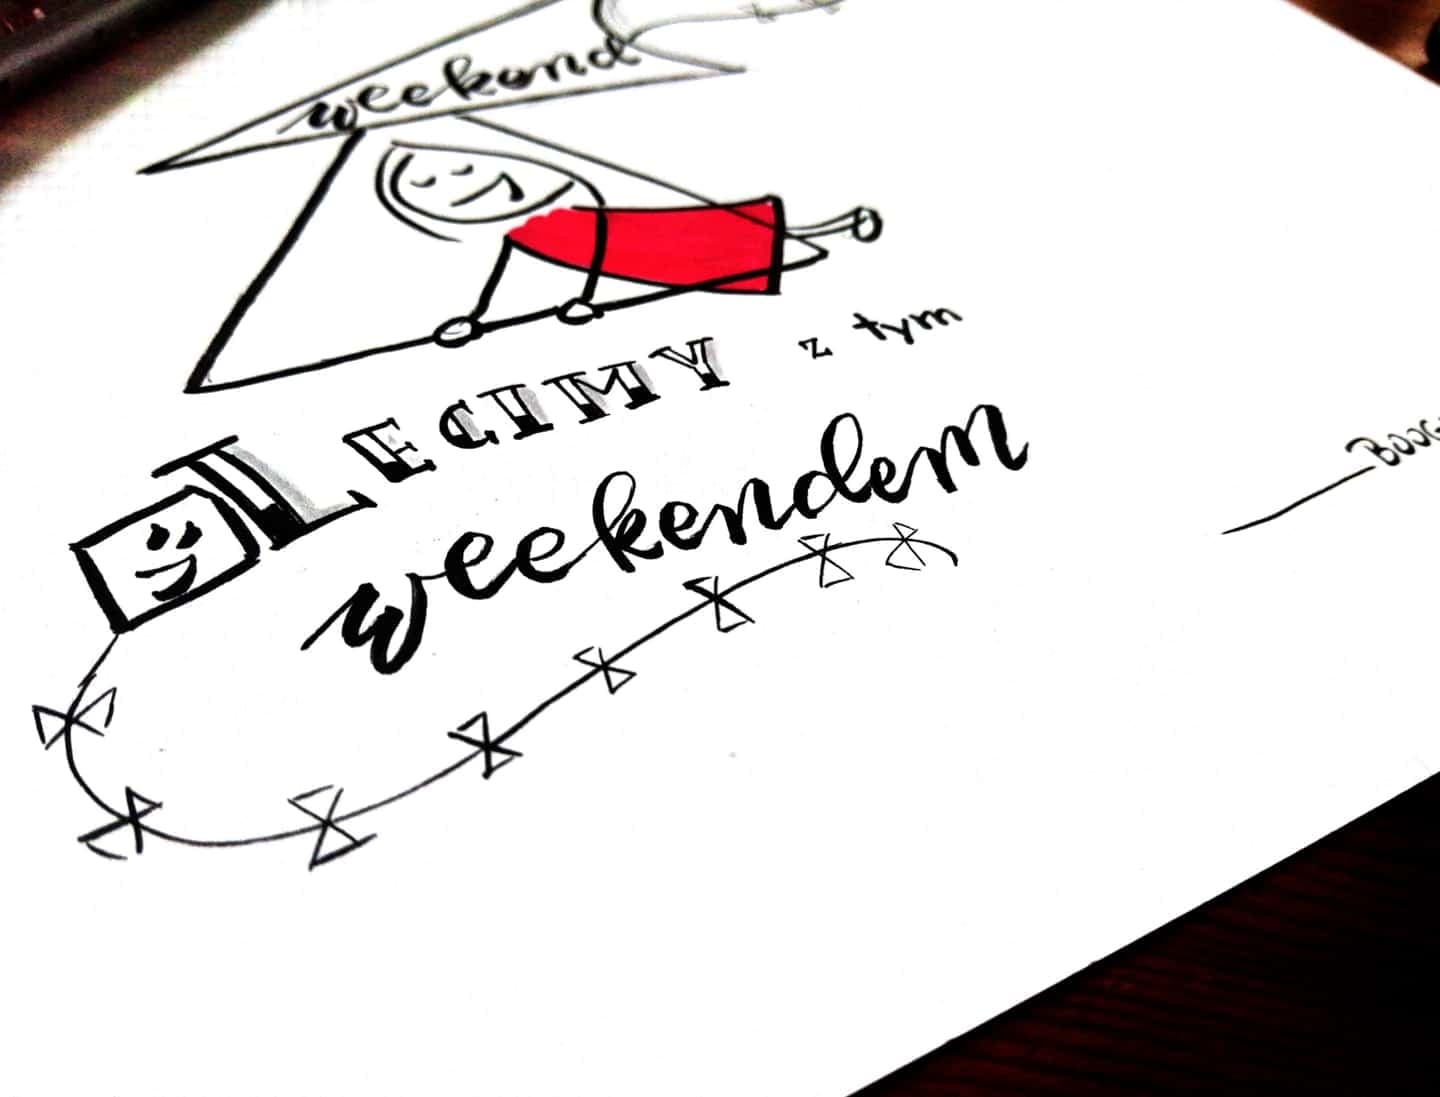 weekend
LECIMY z tym
weekendem